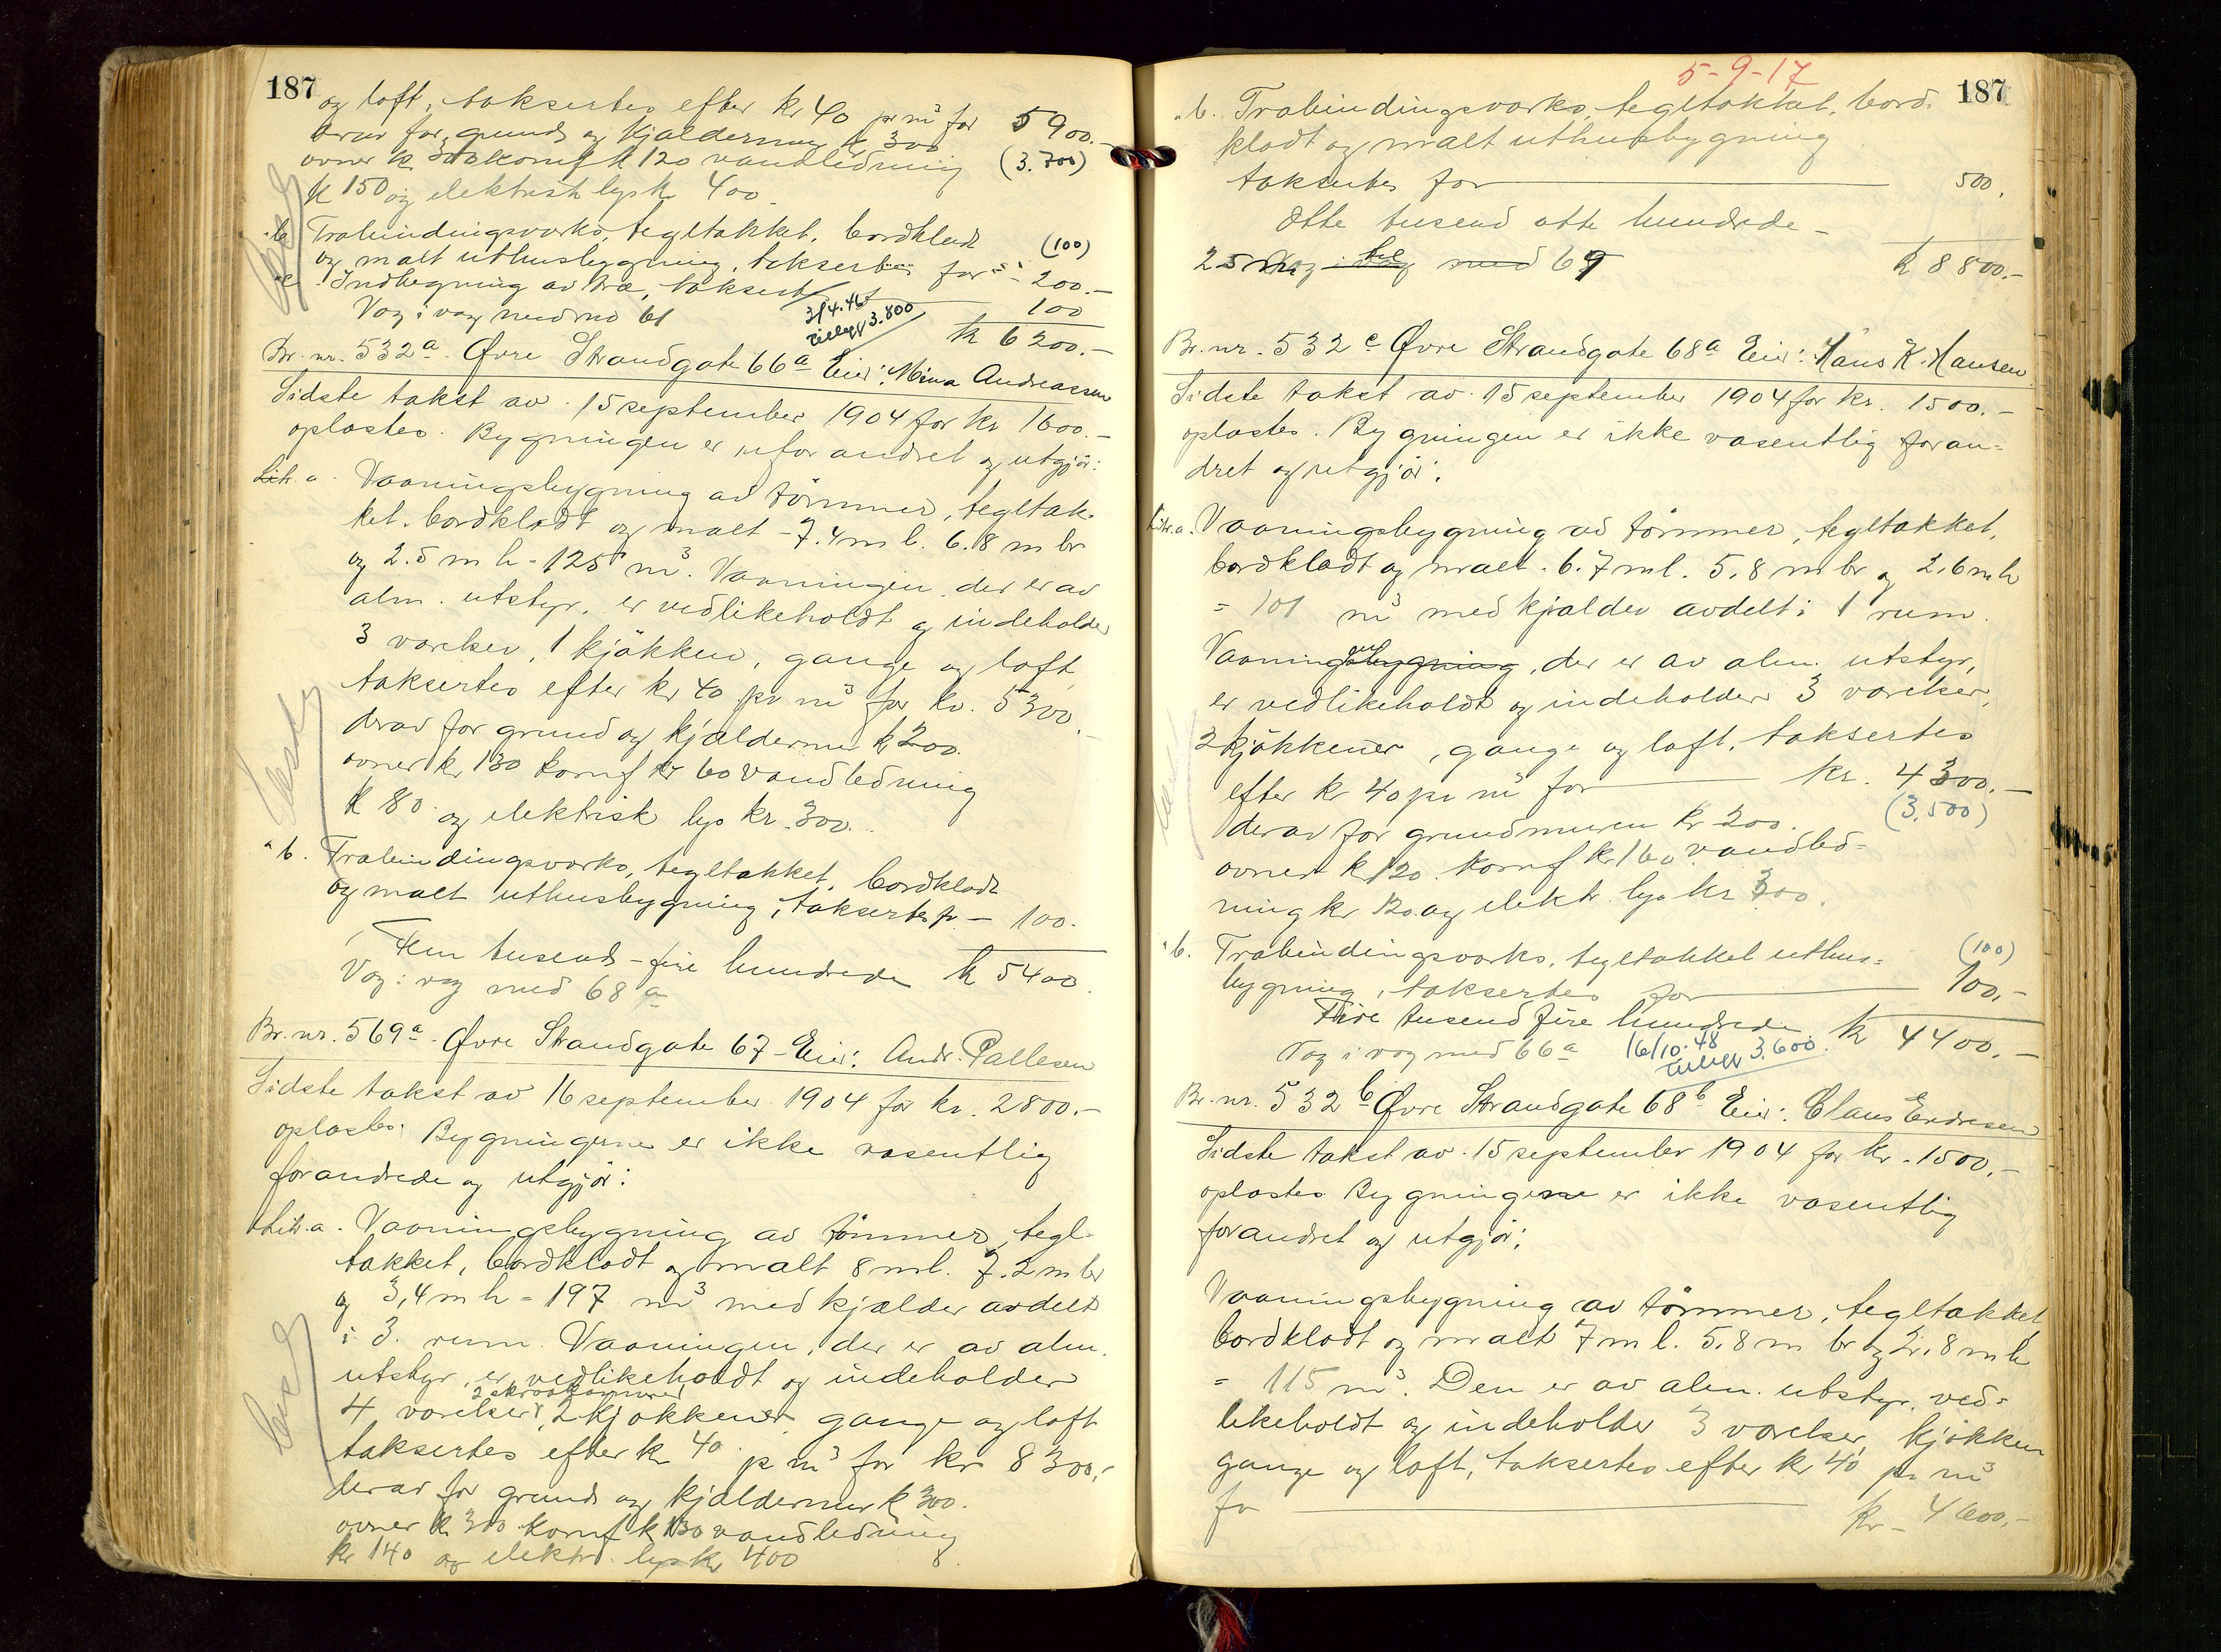 187
og loft, taksertes efter kr 40 pr m³ for 5900.-
derav for grund og kjældermur k 300 (3.700)
ovner kr 300 komf k 120 vandledning
k 150 og elektrisk lys kr 400.
" b. Træbindingsværks, tegltækket, bordklædt (100)
og malt uthusbygning, taksertes for - 200.-
" c. Indhegning av træ, taksert 100
Væg i væg med no 61
3/4.46
Tillegg 3.800
k 6200.-
Br. nr. 532a. Øvre Strandgate 66a Eier: Mina Andreassen
Sidste takst av 15 september 1904 for kr 1600.-
oplæstes. Bygningen er uforandret og utgjör:
Lit. a. Vaaningsbygning av tömmer, tegltæk-
ket, bordklædt og malt - 7.4 m l. 6.8 m br
og 2.5 m h - 125 m³. Vaaningen, der er av
alm. utstyr, er vedlikeholdt og indeholder
3 værelser, 1 kjökken, gange og loft,
taksertes efter kr 40 pr m³ for kr. 5300.-
derav for grund og kjældermur k 200.
ovner kr 130 komf kr 60 vandledning
k 80 og elektrisk lys kr. 300.
" b. Træbindingsværks, tegltækket, bordklædt
og malt uthusbygning, taksertes fr - 100.
Fem tusend - fire hundrede k 5400.
Væg i væg med 68a
Br. nr. 569a. Øvre Strandgate 67 - Eier: Andr. Pallesen
Sidste takst av 16 september 1904 for kr. 2800.-
oplæstes. Bygningerne er ikke væsentlig
forandrede og utgjör:
Litr. a. Vaaningsbygning av tömmer, tegl-
tækket, bordklædt og malt 8 m l. 7.2 m br
og 3,4 m h = 197 m³ med kjælder avdelt
i 3 rum. Vaaningen, der er av alm.
utstyr, er vedlikeholdt og indeholder
2 skraakammer
4 værelser, 2 kjökkener, gange og loft
taksertes efter kr 40 pr m³ for kr 8300,-
derav for grund og kjældermur k 300.
ovner k 300 komf k 130 vandledning
kr 140 og elektr. lys kr 400
5-9-17
187
" b. Træbindingsværks, tegltækket, bord-
klædt og malt uthusbygning
taksertes for 500,
Otte tusend otte hundrede -
væg med 69 k 8800.-
Br. nr. 532c Øvre Strandgate 68a Eier: Hans K. Hansen
Sidste takst av 15 september 1904 for kr. 1500.-
oplæstes. Bygningen er ikke væsentlig foran-
dret og utgjör:
Litr. a. Vaaningsbygning av tömmer, tegltækket,
bordklædt og malt. 6.7 m l. 5,8 m br og 2,6 m h
= 101 m³ med kjælder avdelt i 1 rum.
Vaaningen, der er av alm. utstyr,
er vedlikeholdt og indeholder 3 værelser,
2 kjökkener, gange og loft, taksertes
efter kr 40 pr m³ for kr. 4300.-
derav for grundmuren kr 200. (3.500)
ovner k 120 komf kr 160 vandled-
ning kr 120 og elektr. lys kr 300.
" b. Træbindingsværks, tegltækket uthus- (100)
bygning, taksertes for 100.-
Fire tusend fire hundrede k 4400.-
Væg i væg med 66a 16/10.48
Tillegg 3.600
Br. nr. 532b Øvre Strandgate 68b Eier: Claus Endresen
Sidste takst av 15 september 1904 for kr. 1500.-
oplæstes Bygningene er ikke væsentlig
forandret og utgjör:
Vaaningsbygning av tömmer, tegltækket
bordklædt og malt 7 m l. 5,8 m br og 2,8 m h
= 115 m³. Den er av alm. utstyr, ved-
likeholdt og indeholder 3 værelser, kjökken
gange og loft, taksertes efter kr 40 pr m³
for kr - 4600,-